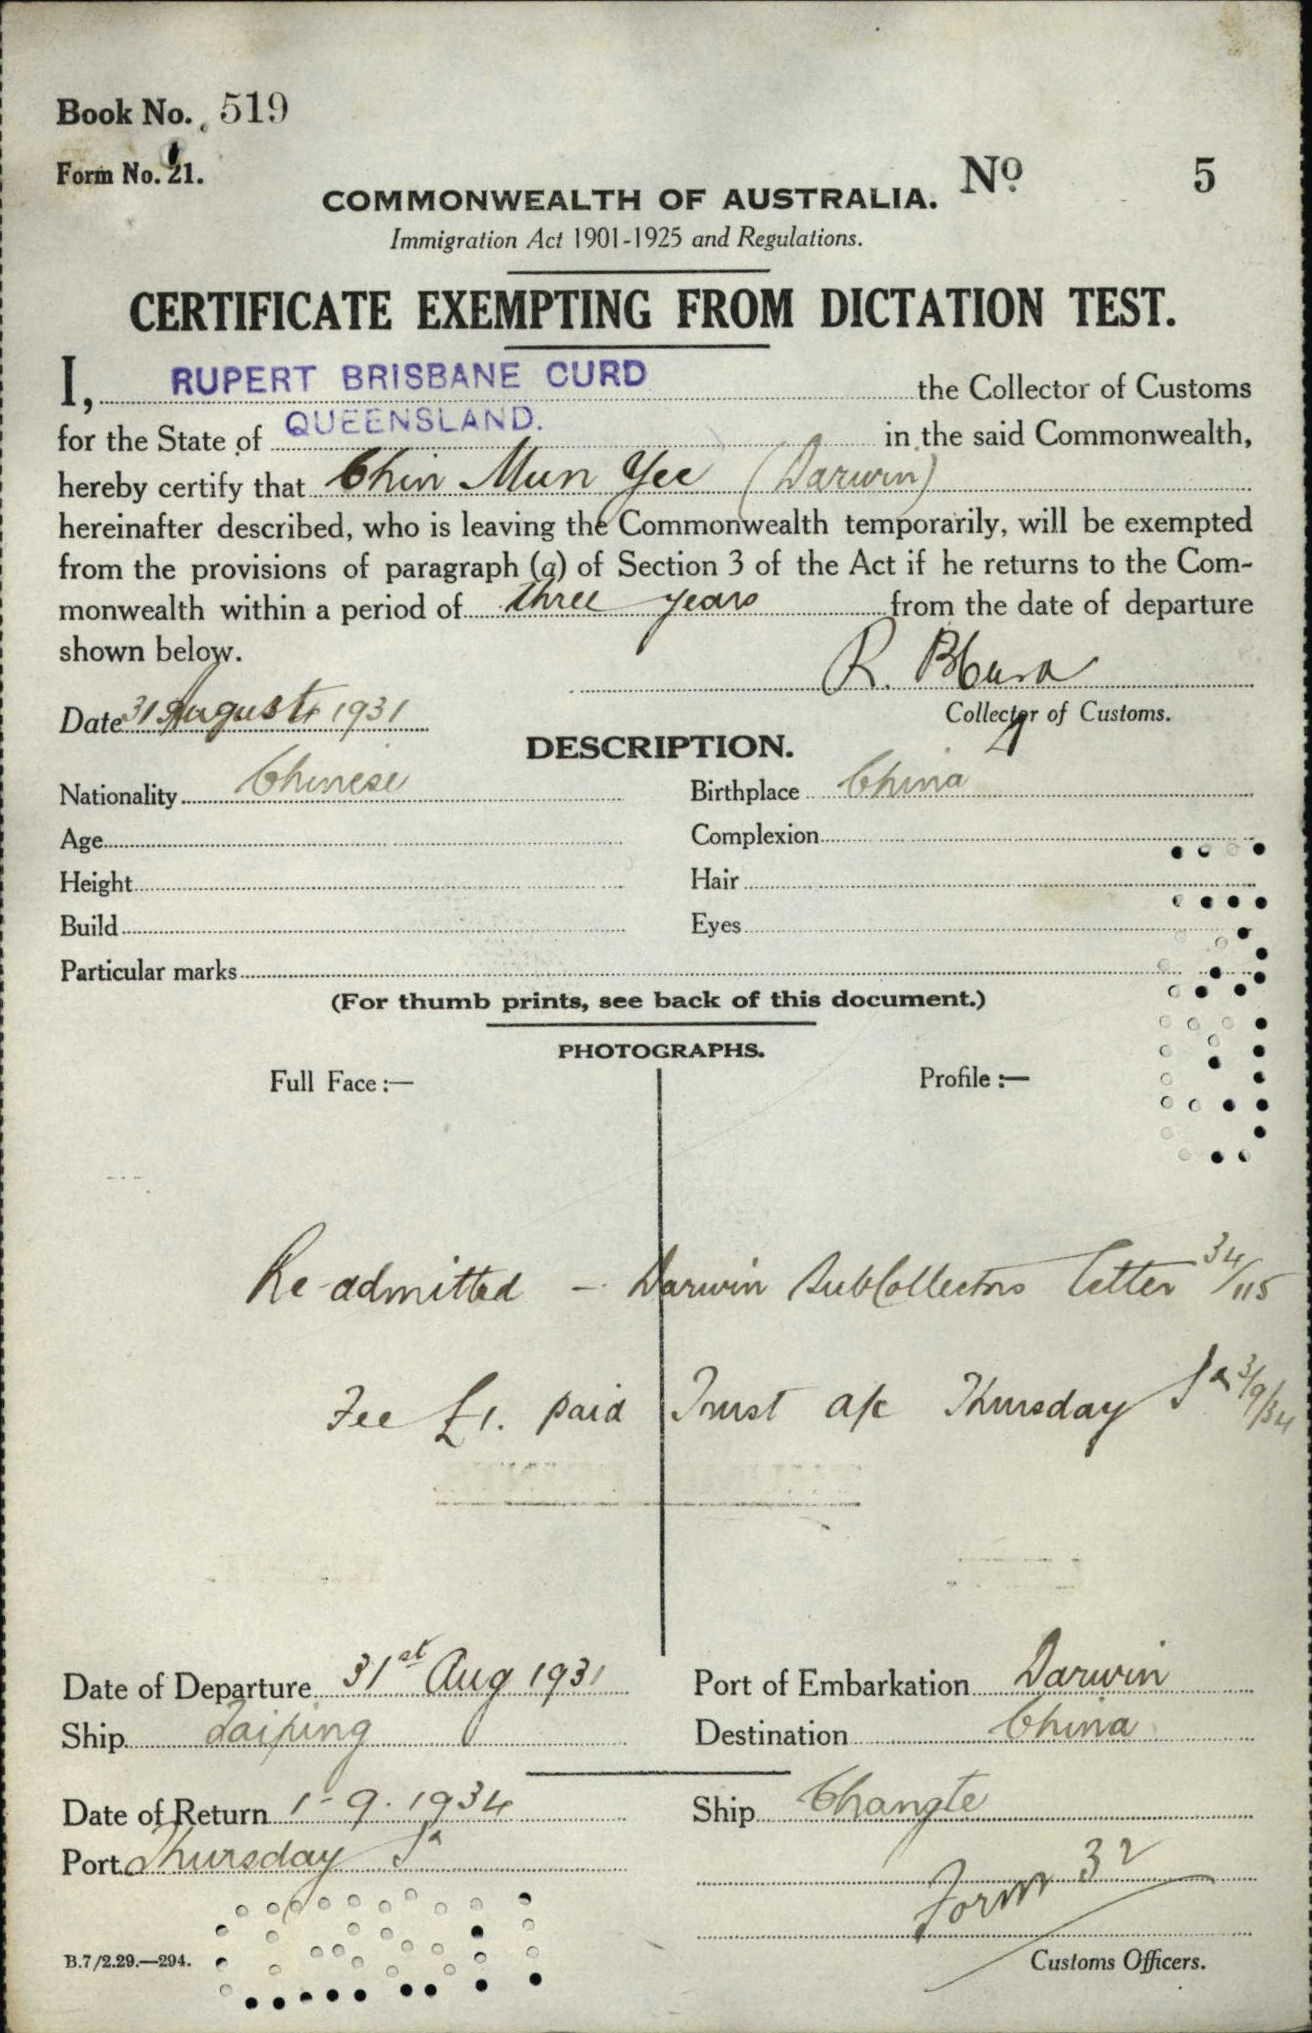 Book No. 519
Form No. 21.
COMMONWEALTH OF AUSTRALIA. No. 5
Immigration Act 1901-1925 and Regulations.
CERTIFICATE EXEMPTING FROM DICTATION TEST.
I, RUPERT BRISBANE CURD the Collector of Customs
for the State of QUEENSLAND. in the said Commonwealth,
hereby certify that Chin Mun Yee (Darwin)
hereinafter described, who is leaving the Commonwealth temporarily, will be exempted
from the provisions of paragraph (a) of Section 3 of the Act if he returns to the Com-
monwealth within a period of three years from the date of departure
shown below.
R. B Curd
Date 31 August 1931 Collector of Customs.
DESCRIPTION.
Nationality Chinese Birthplace China
Age Complexion
Height Hair
Build Eyes
Particular marks
(For thumb prints, see back of this document.)
PHOTOGRAPHS.
Full Face :— Profile :—
Re-admitted - Darwin SubCollectors letter 34/115
Fee £1. paid Trust a/c Thursday Is 3/9/34
Date of Departure 31st Aug 1931 Port of Embarkation Darwin
Ship Taiping Destination China
Date of Return 1-9-1934 Ship Changte
Port Thursday Is
Form 32
B.7/2.29.—294. Customs Officers.